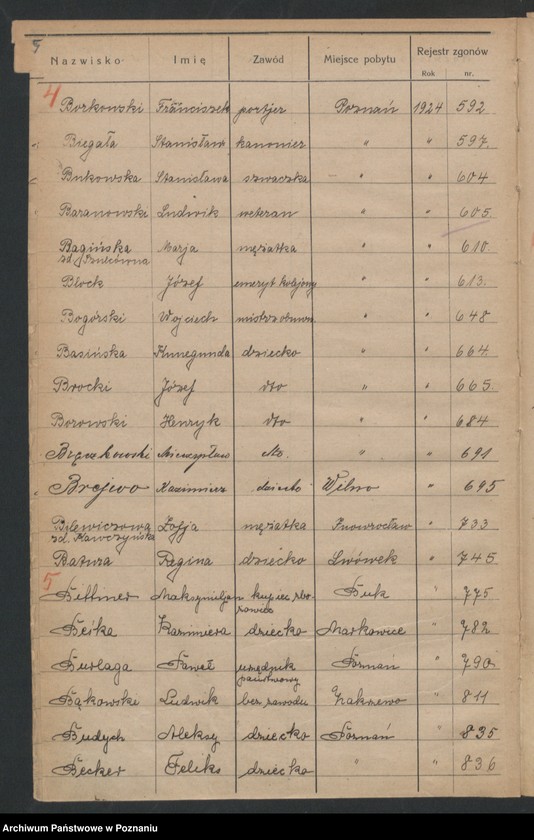 5
Nazwisko Imię Zawód Miejsce pobytu Rejestr zgonów
Rok nr.
4
Borkowski Franciszek portjer Poznań 1924 592
Biegała Stanisław kanonier " " 597.
Bukowska Stanisława szwaczka " " 604
Baranowski Ludwik weteran " " 605.
Bagińska Marja mężatka " " 610
zd.
Block Józef emeryt kolejowy " " 613.
Bogórski Wojciech mistrz " " 648
Basińska Kunegunda dziecko " " 664.
Brocki Józef dto " " 665.
Borowski Henryk dto " " 684
Bączkowski Mieczysław dto. " " 691
Brejwo Kazimierz dziecko Wilno " 695
Bilewiczowa Zofja mężatka Inowrocław " 733
zd. Kawczyńska
Batura Regina dziecko Lwówek " 745
5
Bittner Maksymiljan kupiec Buk " 775
Beśka Kazimiera dziecko Markowice " 782
Burlaga Paweł urzędnik Poznań " 790
państwowy
Bąkowski Ludwik bez zawodu Zakrzewo " 811
Budych Aleksy dziecko Poznań " 835
Becker Feliks dziecko " " 836
Archiwum Państwowe w Poznaniu